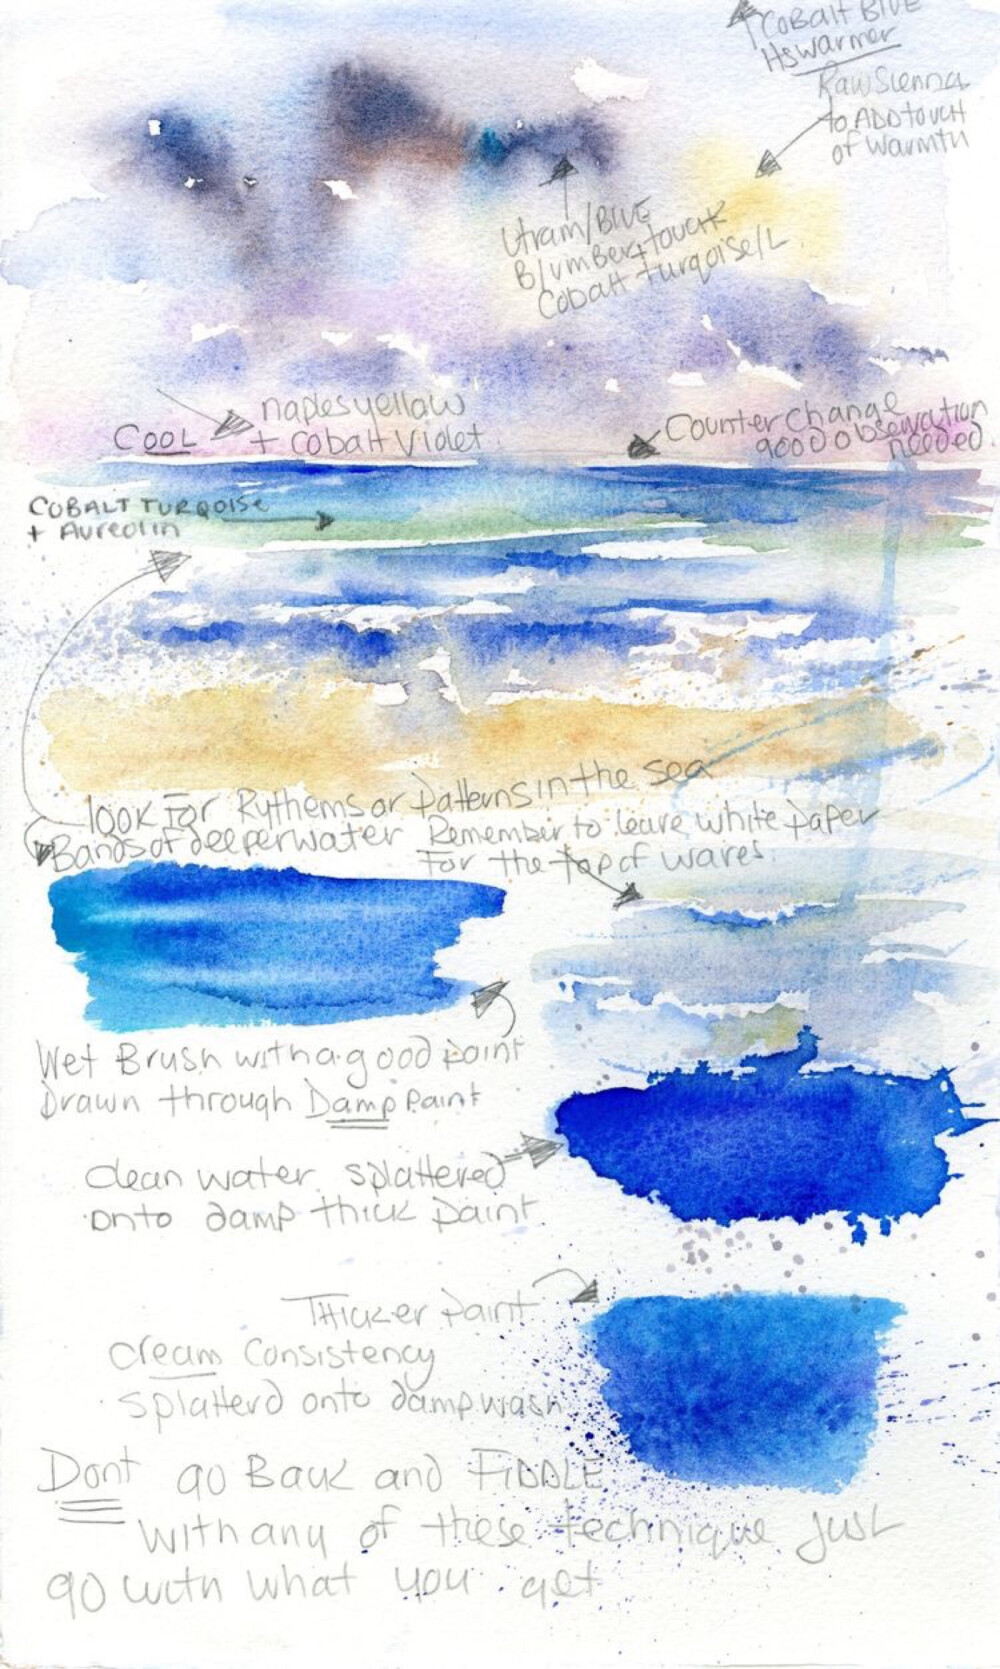 Cobalt Blue
Hswarmer
Raw Sienna
to ADD touch
of warmth
Utram/BLUE
B/umber+touch
Cobalt turqoise/L
naplesyellow
COOL
+ cobalt violet
Counterchange
good observation
needed
COBALT TURQOISE
+ Aureolin
look For Rythems or patterns in the sea
Bands of deeper water
Remember to leave white paper
For the top of waves.
Wet Brush with a good point
Drawn through Damp Paint
clean water splattered
onto damp thick paint.
Thicker paint
cream Consistency
splatterd onto damp wash
Dont go Back and FIDDLE
with any of these technique just
go with what you get